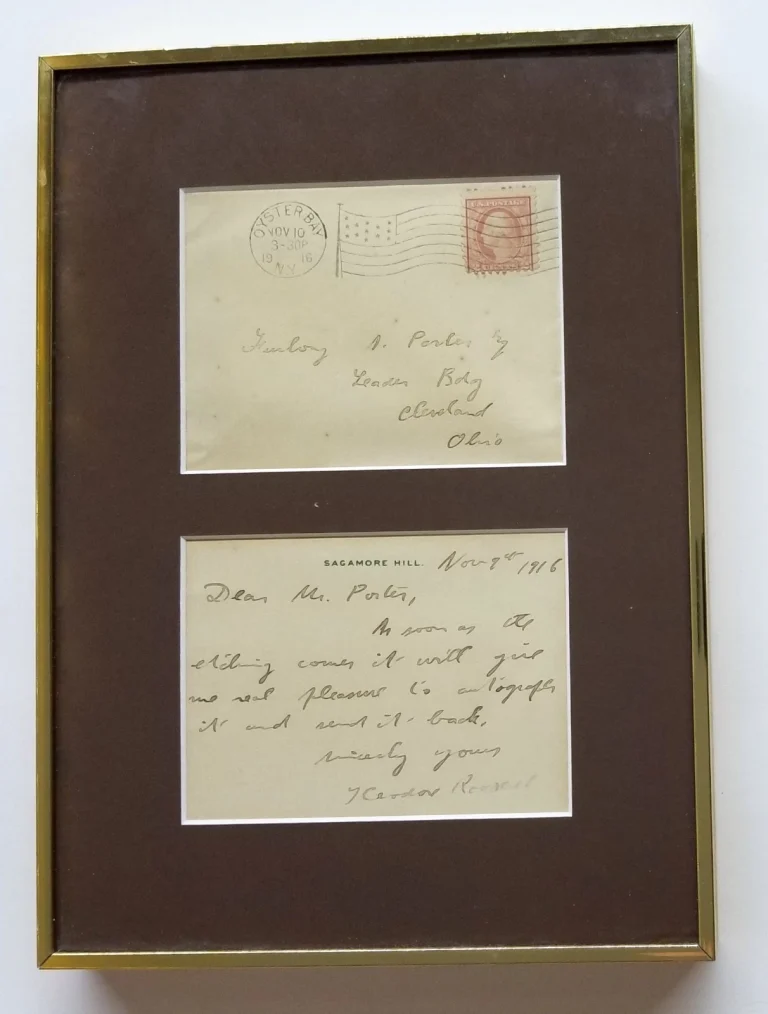 OYSTER BAY
NOV 10
3-30P
19 16
N.Y.
U.S. POSTAGE
S. Porter Esq
Leader Bldg
Cleveland
Ohio
SAGAMORE HILL. Nov 9th 1916
Dear Mr. Porter,
As soon as the
etching comes it will give
me real pleasure to autograph
it and send it back.
Sincerely yours
Theodore Roosevelt